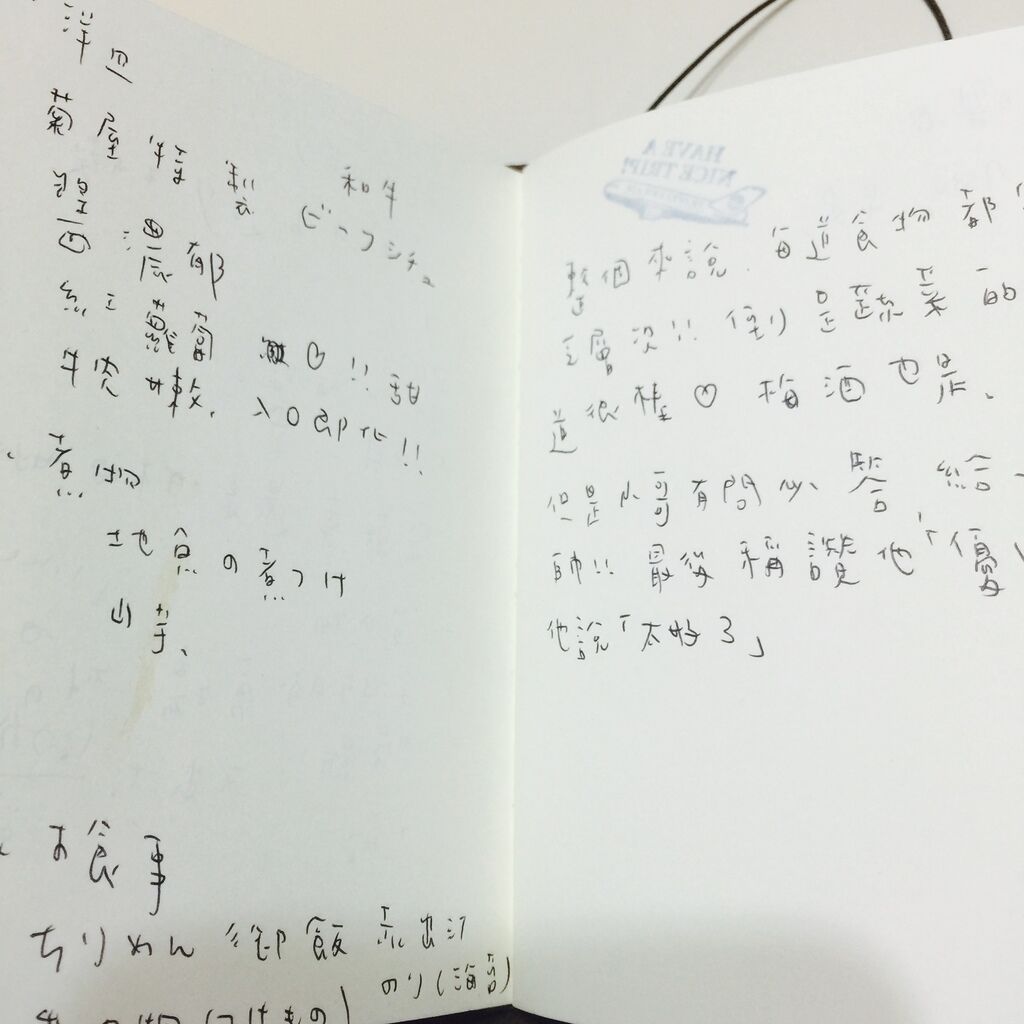 洋皿
菊屋特製 和牛
ビーフシチュー
醬面濃郁
紅蘿蔔 嫩♡!! 甜
牛肉 嫩, 入口即化!!
煮物
地魚の煮つけ
山芋、
お食事
ちりめん 御飯 赤出汁
のり(海苔)
(つけもの)
HAVE A
NICE TRIP!
整個來說、每道食物都
層次!! 倒是蔬菜的
道很棒♡ 梅酒也是、
但是小哥有問必答 給
帥!! 最後稱讚他「優
他說「太好了」